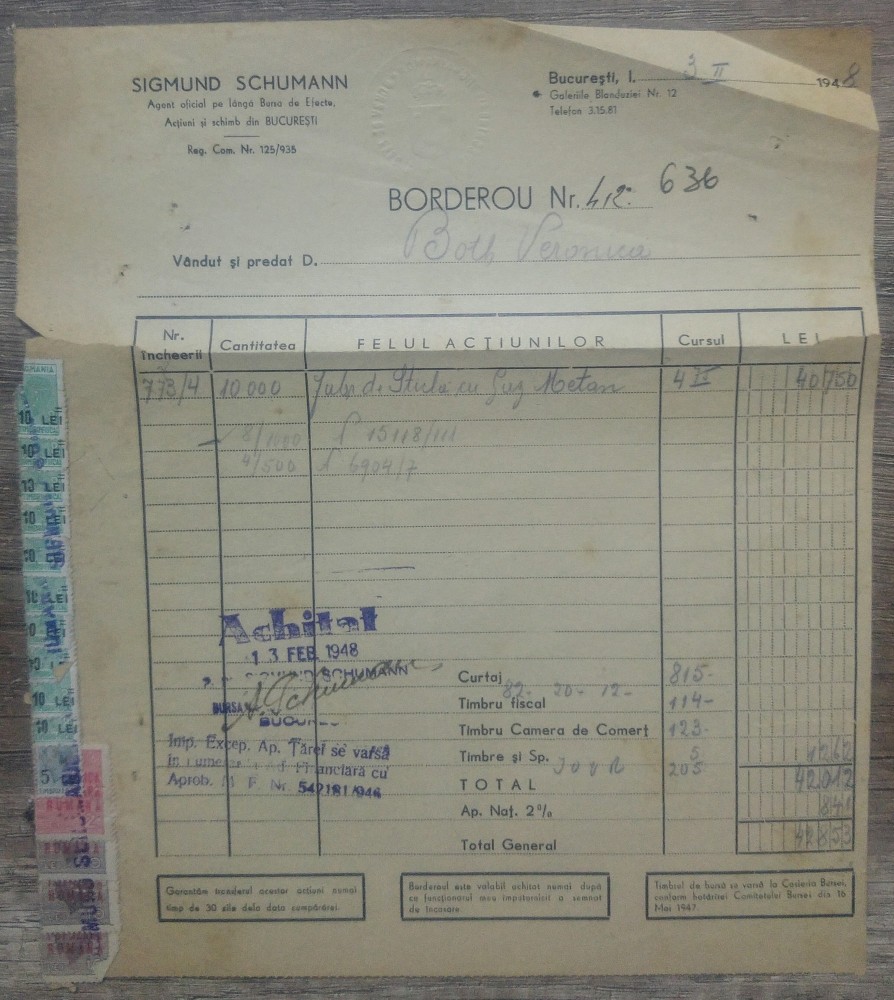 SIGMUND SCHUMANN
Agent oficial pe lângă Bursa de Efecte,
Acțiuni și schimb din BUCUREȘTI
Reg. Com. Nr. 125/935
București, I. 3 II 1948
Galeriile Blanduziei Nr. 12
Telefon 3.15.81
BORDEROU Nr. 412. 636
Vândut și predat D. Both Veronica
Nr. încheerii Cantitatea FELUL ACȚIUNILOR Cursul LEI
773/4 10000 de Sticlă cu Gaz Metan 4 40750
8/1000 15118/111
4/500 6904/7
Achitat
13 FEB. 1948
SIGMUND SCHUMANN
BUCUREȘTI
Imp. Excep. Ap. Țărei se varsă
în numerar Financiară cu
Aprob. M. F. Nr.
Curtaj 815-
82- 20- 12-
Timbru fiscal 114-
Timbru Camera de Comerț 123-
Timbre și Sp. 5 1262
205
TOTAL 42012
Ap. Naț. 2% 841
Total General 42853
Garantăm transferul acestor acțiuni numai
timp de 30 zile dela data cumpărărei.
Borderoul este valabil achitat numai după
ce funcționarul meu împuternicit a semnat
de încasare
Timbrul de bursă se varsă la Casieria Bursei,
conform hotărîrei Comitetului Bursei din 16
Mai 1947.
10 LEI
10 LEI
10 LEI
10 LEI
10 LEI
10 LEI
10 LEI
10 LEI
10 LEI
10 LEI
5
ROMANIA